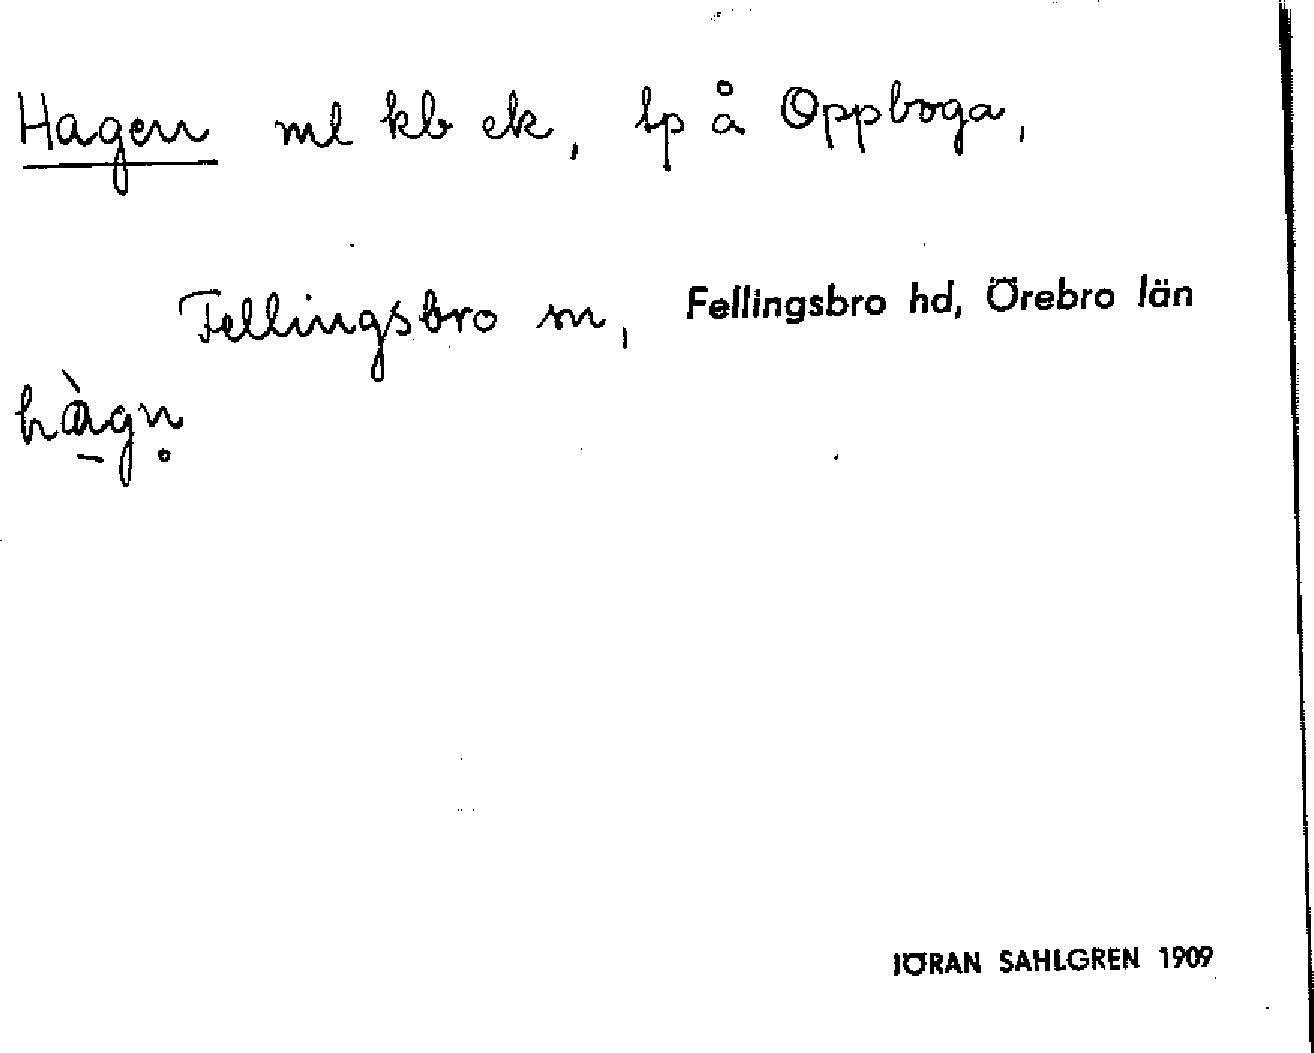 Hagen ml kb ek, lp å Oppboga,
Fellingsbro sn, Fellingsbro hd, Örebro län
hàgn̥
JÖRAN SAHLGREN 1909